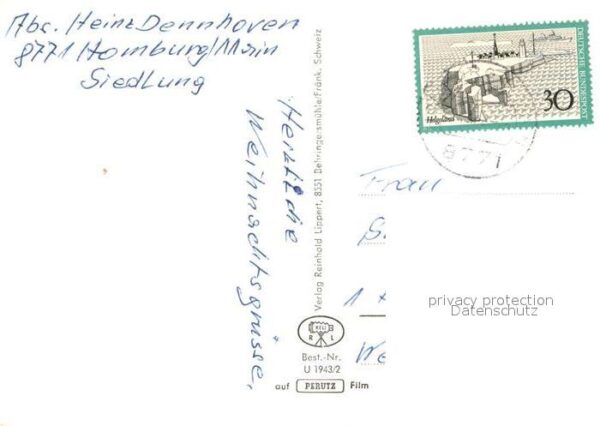 Abs. Heinz Dennhoven
8771 Homburg/Main
Siedlung
Herzliche
Weihnachtsgrüsse,
Verlag Reinhold Lippert, 8551 Behringersmühle/Fränk. Schweiz
R L
Best.-Nr.
U 1943/2
auf PERUTZ Film
DEUTSCHE BUNDESPOST
Helgoland
30
8771
Frau
1
We
privacy protection
Datenschutz